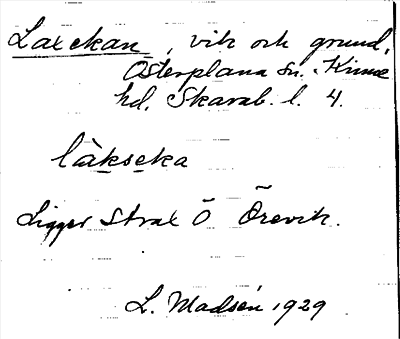 Laxekan, vik och grund,
Österplana sn. Kinne
hd. Skarab. l. 4.
làkseka
Ligger strax Ö Örevik.
L. Madsén 1929